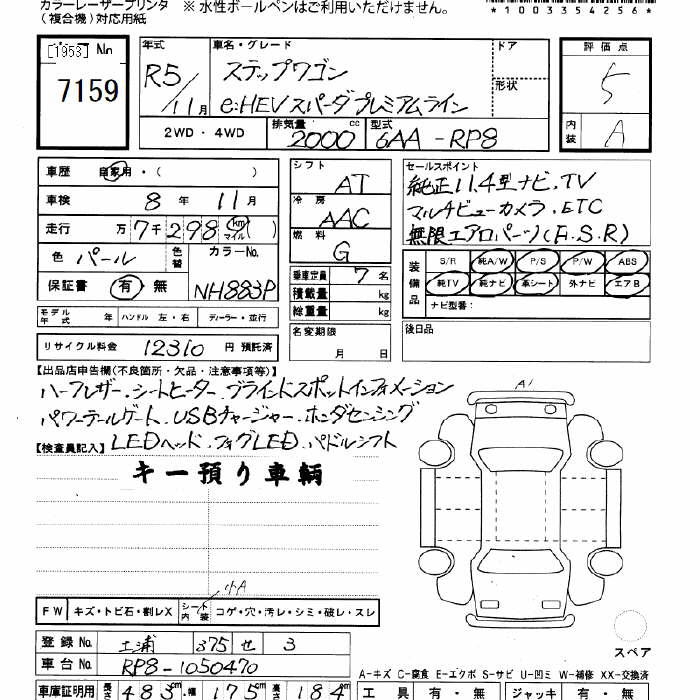 カラーレーザープリンタ ※ 水性ボールペンはご利用いただけません。
（複合機）対応用紙
*1003354256*
[1953] No
7159
年式 R5/11月
車名・グレード ステップワゴン
e:HEV スパーダプレミアムライン
ドア
形状
2WD ・ 4WD 排気量 2000 cc 型式 6AA -RP8
評価点 5
内装 A
車歴 自家用・（ ）
車検 8 年 11 月
走行 万 7 千 298 km マイル ( )
色 パール 色替 カラーNo. NH883P
保証書 有・無
モデル年式 年 ハンドル 左・右 ディーラー・並行
リサイクル料金 12310 円 預託済
シフト AT
冷房 AAC
燃料 G
乗車定員 7 名
積載量 kg
総重量 kg
名変期限 月 日
セールスポイント
純正11.4型ナビ、TV
マルチビューカメラ、ETC
無限エアロパーツ(F.S.R)
装備品 S/R 純A/W P/S P/W ABS
純TV 純ナビ 革シート 外ナビ エアB
ナビ型番：
後日品
【出品店申告欄（不良箇所・欠品・注意事項等）】
ハーフレザー、シートヒーター、ブラインドスポットインフォメーション
パワーテールゲート、USBチャージャー、ホンダセンシング
LEDヘッド、フォグLED、パドルシフト
【検査員記入】
キー預り車輌
A1
小A
FW キズ・トビ石・割レX シート内装 コゲ・穴・汚レ・シミ・破レ・スレ
スペア
登録 No. 土浦 375 せ 3
車台 No. RP8-1050470
A-キズ C-腐食 E-エクボ S-サビ U-凹ミ W-補修 XX-交換済
車庫証明用 長さ 483 cm 幅 175 cm 高さ 184 cm
工具 有・無 ジャッキ 有・無